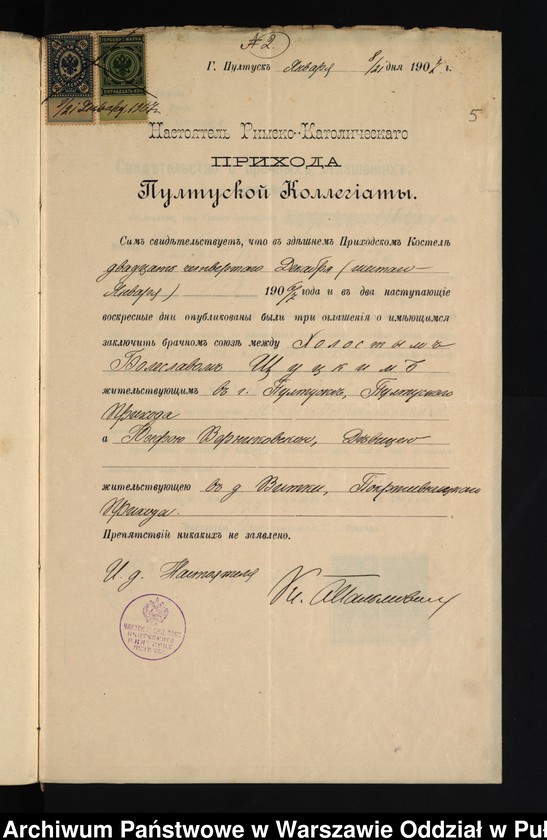 № 2.
Г. Пултускъ Января 8/21 дня 1907 г.
8/21 Января 1907 г.
5
Настоятель Римско-Католическаго
ПРИХОДА
Пултуской Коллегіаты.
Симъ свидѣтельствуетъ, что въ здѣшнемъ Приходскомъ Костелѣ
двадцать четвертаго Декабря (шестаго
Января) 1906/7 года и въ два наступающіе
воскресные дни опубликованы были три оглашенія о имѣющимся
заключить брачномъ союзѣ между Холостымъ
Болеславомъ Щуцкимъ
жительствующимъ въ г. Пултускѣ, Пултускаго
Прихода
а Вѣрою, Дѣвицею
жительствующею въ д
Прихода.
Препятствій никакихъ не заявлено.
И. д. Настоятеля
Кс.
Archiwum Państwowe w Warszawie Oddział w Puł